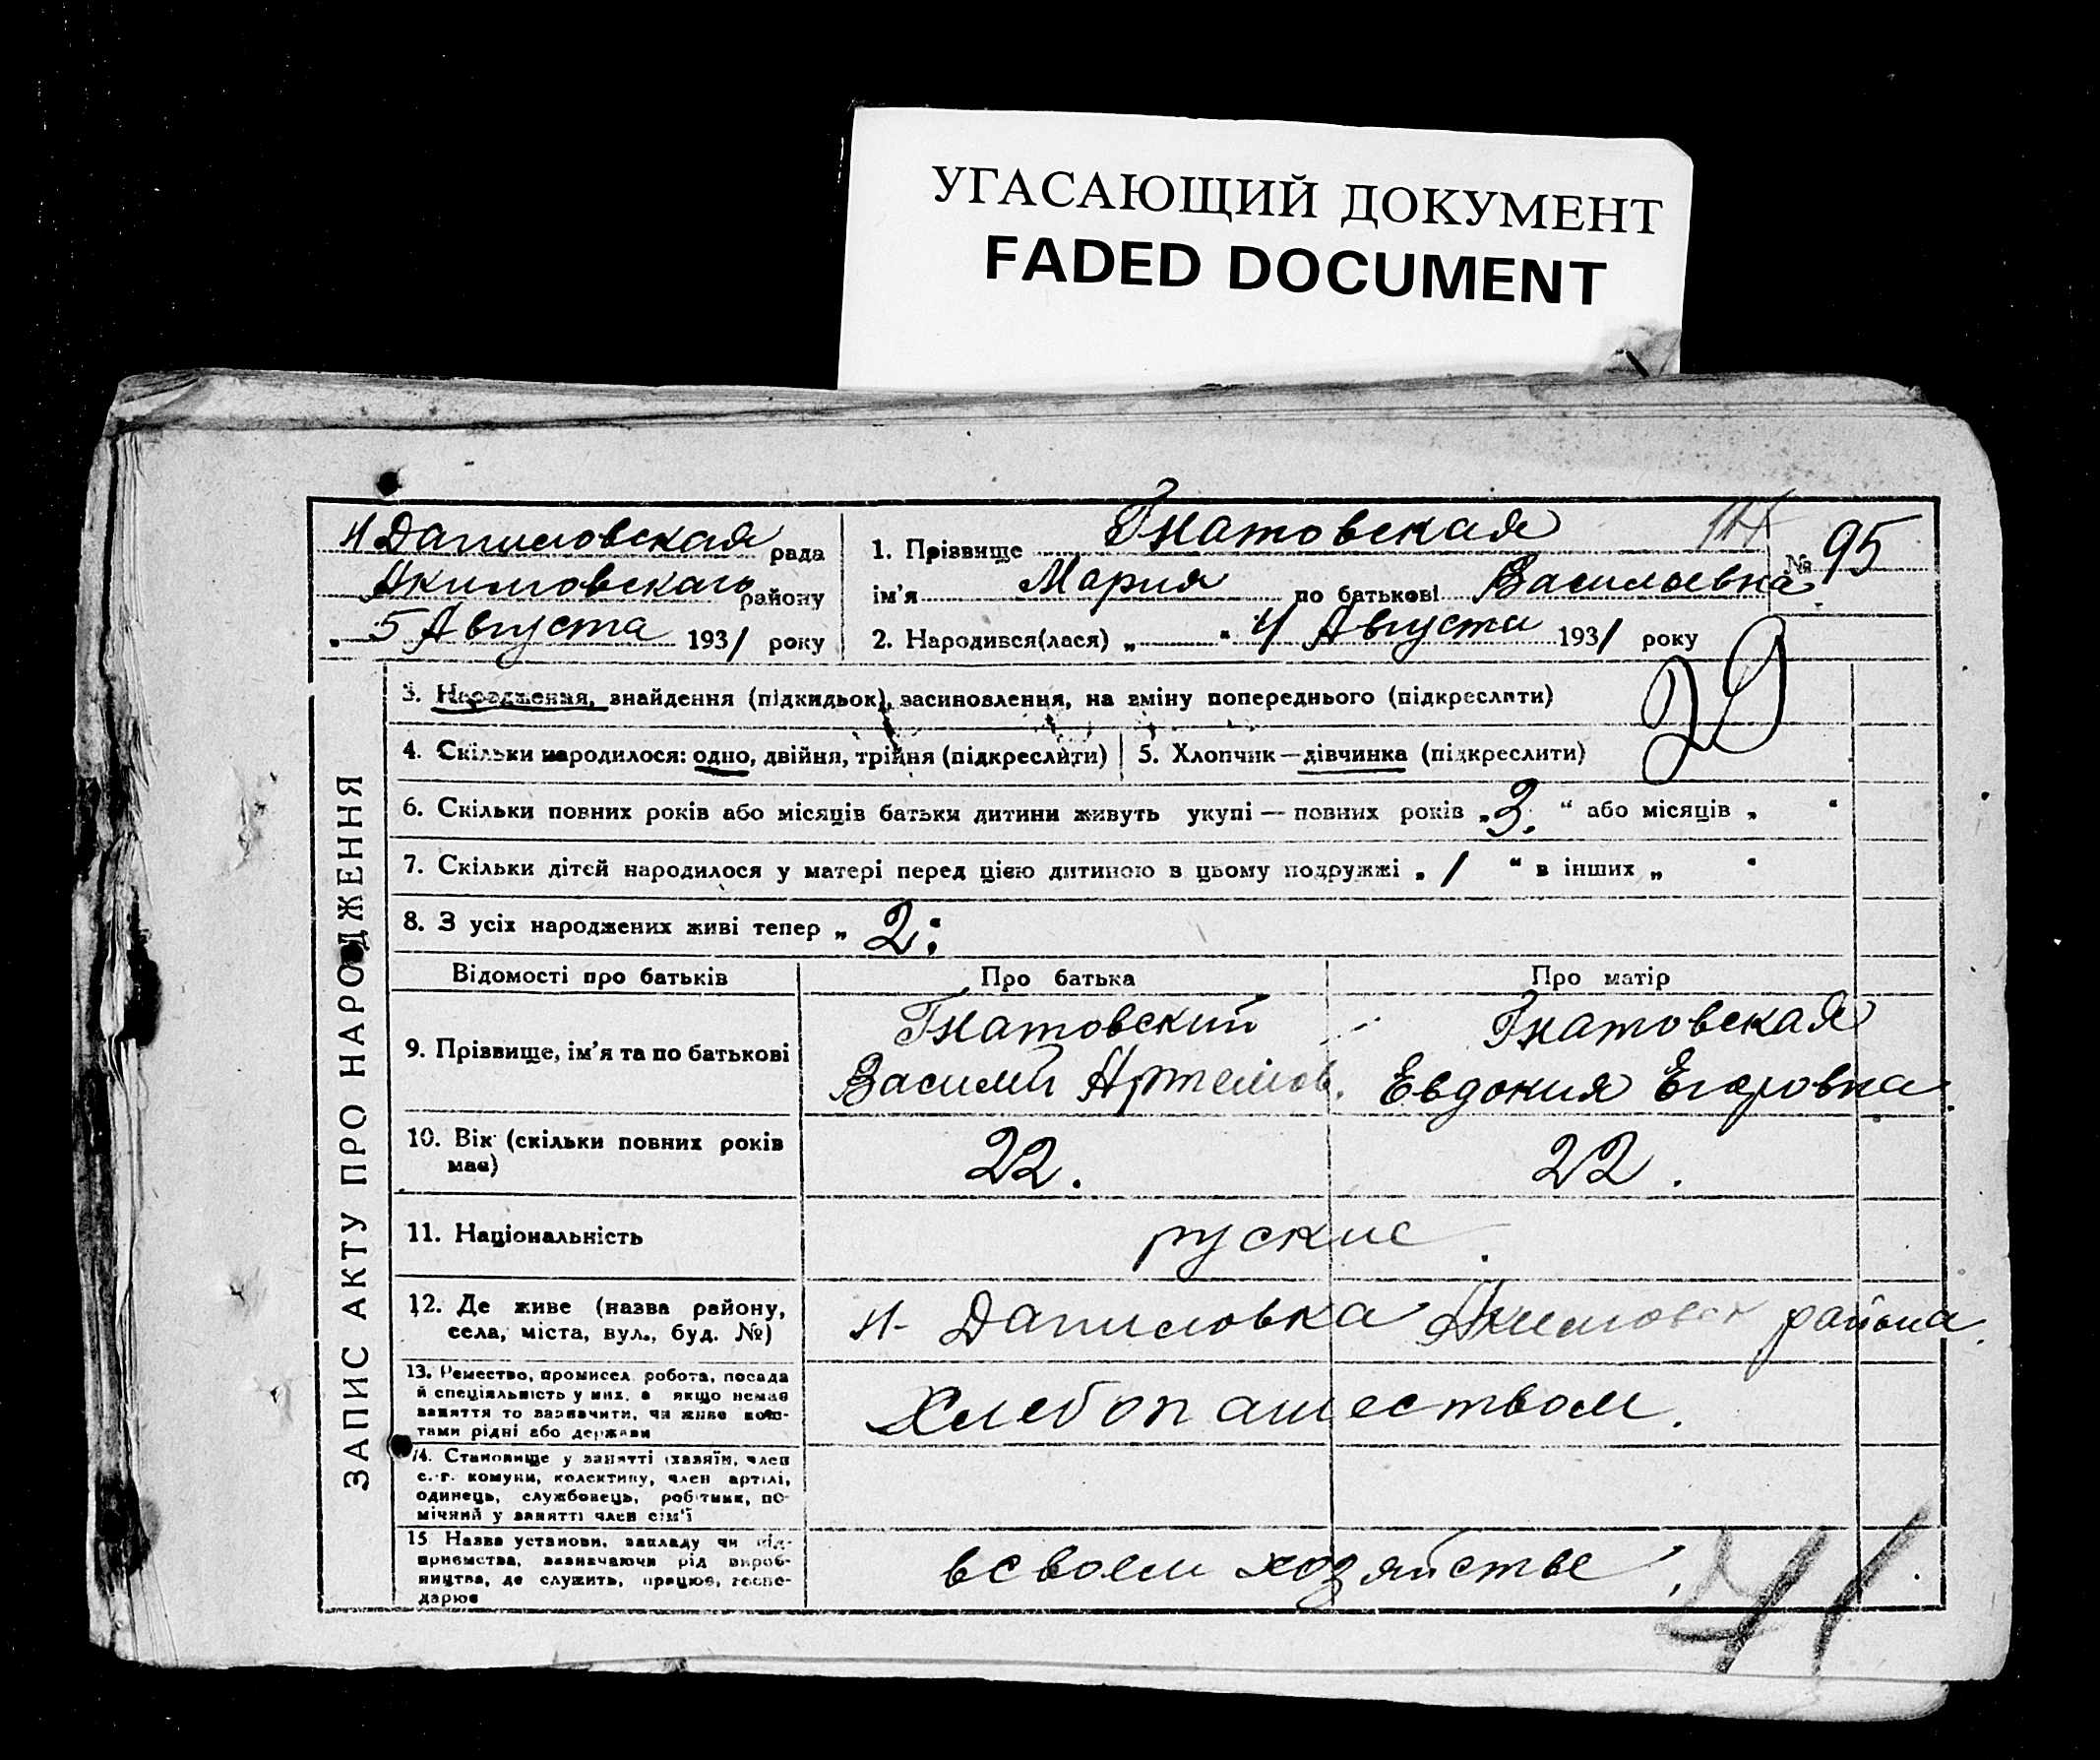 УГАСАЮЩИЙ ДОКУМЕНТ
FADED DOCUMENT
Н Даниловская рада
Акимовскаго району
„ 5 Августа 1931 року
1. Прізвище Гнатовская
№ 95
ім'я Мария по батькові Васильевна
2. Народився(лася) „ “ 4 Августа 1931 року
29
ЗАПИС АКТУ ПРО НАРОДЖЕННЯ
3. Народження, знайдення (підкидьок), засиновлення, на зміну попереднього (підкреслити)
4. Скільки народилося: одно, двійня, трійня (підкреслити)
5. Хлопчик—дівчинка (підкреслити)
6. Скільки повних років або місяців батьки дитини живуть укупі — повних років „ 3. “ або місяців „ “
7. Скільки дітей народилося у матері перед цією дитиною в цьому подружжі „ 1 “ в інших „ “
8. З усіх народжених живі тепер „ 2:
Відомості про батьків Про батька Про матір
9. Прізвище, ім'я та по батькові
Гнатовский
Василий Артемов.
Гнатовская
Евдокия Егоровна.
10. Вік (скільки повних років
має)
22. 22.
11. Національність руские.
12. Де живе (назва району,
села, міста, вул., буд. №)
Н- Даниловка Акимовск района.
13. Ремество, промисел, робота, посада
й спеціяльність у них, а якщо немає
заняття то зазначити, чи живе кош-
тами рідні або держави
Хлебопашеством.
14. Становище у занятті (хазяїн, член
с.-г. комуни, колективу, член артілі,
одинець, службовець, робітник, по-
мічний у занятті член сім'ї
15 Назва установи, закладу чи під-
приємства, зазначаючи рід вироб-
ництва, де служить, працює, госпо-
дарює
в своем хозяйстве.
41